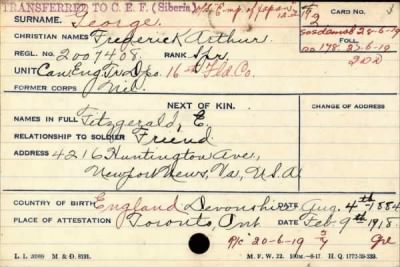 TRANSFERRED TO C. E. F. (Siberia)
CARD NO.
SURNAME. George.
sosdemob 28-6-19
CHRISTIAN NAMES Frederick Arthur
FOLL.
REGL. NO. 2007408. RANK Spr,
178 27-6-19
UNIT Can Eng Tr Dpo. 16th Fld Co.
FORMER CORPS Nil.
NEXT OF KIN.
CHANGE OF ADDRESS
NAMES IN FULL Fitzgerald, E.
RELATIONSHIP TO SOLDIER Friend
ADDRESS 4216 Huntington Ave,
Newport News, Va, U.S.A
COUNTRY OF BIRTH England Devonshire DATE Aug. 4th 1884
PLACE OF ATTESTATION Toronto, Ont DATE Feb. 9th 1918.
R/c 20-6-19
L. L. M. & D. M. F. W. 22.